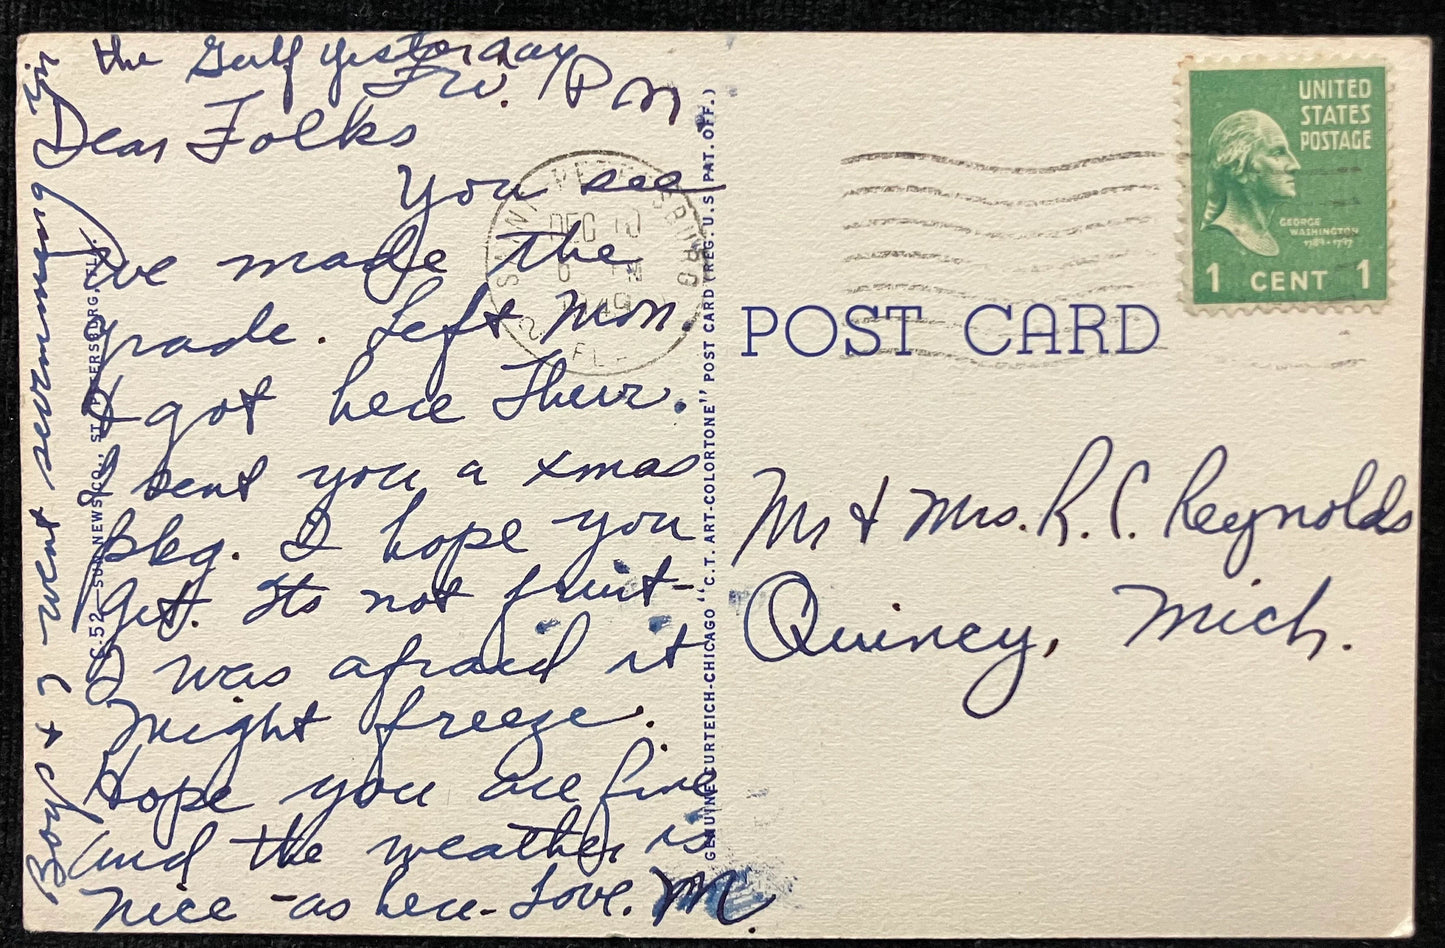 Fri. PM
Dear Folks
You see
we made the
grade. Left Mon.
& got here Thur.
I sent you a xmas
pkg. I hope you
get. Its not fruit-
I was afraid it
might freeze.
Hope you are fine
and the weather is
nice - as here - Love. M
Boys & I went swimming in
the Gulf yesterday
C-52—SUN NEWS CO., ST. PETERSBURG, FLA.
GENUINE CURTEICH-CHICAGO "C.T. ART-COLORTONE" POST CARD (REG. U.S. PAT. OFF.)
SAINT PETERSBURG
DEC 10
6 PM
1949
2 FLA
POST CARD
UNITED
STATES
POSTAGE
GEORGE
WASHINGTON
1789-1797
1 CENT 1
Mr & Mrs. R. C. Reynolds
Quincy, Mich.